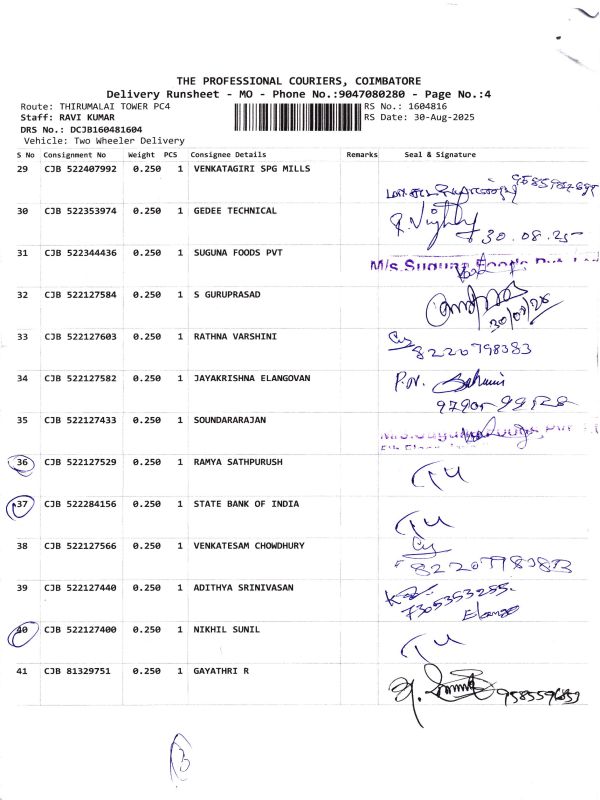 THE PROFESSIONAL COURIERS, COIMBATORE
Delivery Runsheet - MO - Phone No.:9047080280 - Page No.:4
Route: THIRUMALAI TOWER PC4 RS No.: 1604816
Staff: RAVI KUMAR RS Date: 30-Aug-2025
DRS No.: DCJB160481604
Vehicle: Two Wheeler Delivery
S No Consignment No Weight PCS Consignee Details Remarks Seal & Signature
29 CJB 522407992 0.250 1 VENKATAGIRI SPG MILLS
30 CJB 522353974 0.250 1 GEDEE TECHNICAL
30.08.25
31 CJB 522344436 0.250 1 SUGUNA FOODS PVT
M/s.Suguna Foods Pvt. Ltd
32 CJB 522127584 0.250 1 S GURUPRASAD
30/08/25
33 CJB 522127603 0.250 1 RATHNA VARSHINI
8220798383
34 CJB 522127582 0.250 1 JAYAKRISHNA ELANGOVAN
P.N.
35 CJB 522127433 0.250 1 SOUNDARARAJAN
36 CJB 522127529 0.250 1 RAMYA SATHPURUSH
37 CJB 522284156 0.250 1 STATE BANK OF INDIA
38 CJB 522127566 0.250 1 VENKATESAM CHOWDHURY
39 CJB 522127440 0.250 1 ADITHYA SRINIVASAN
7305353255.
40 CJB 522127400 0.250 1 NIKHIL SUNIL
41 CJB 81329751 0.250 1 GAYATHRI R